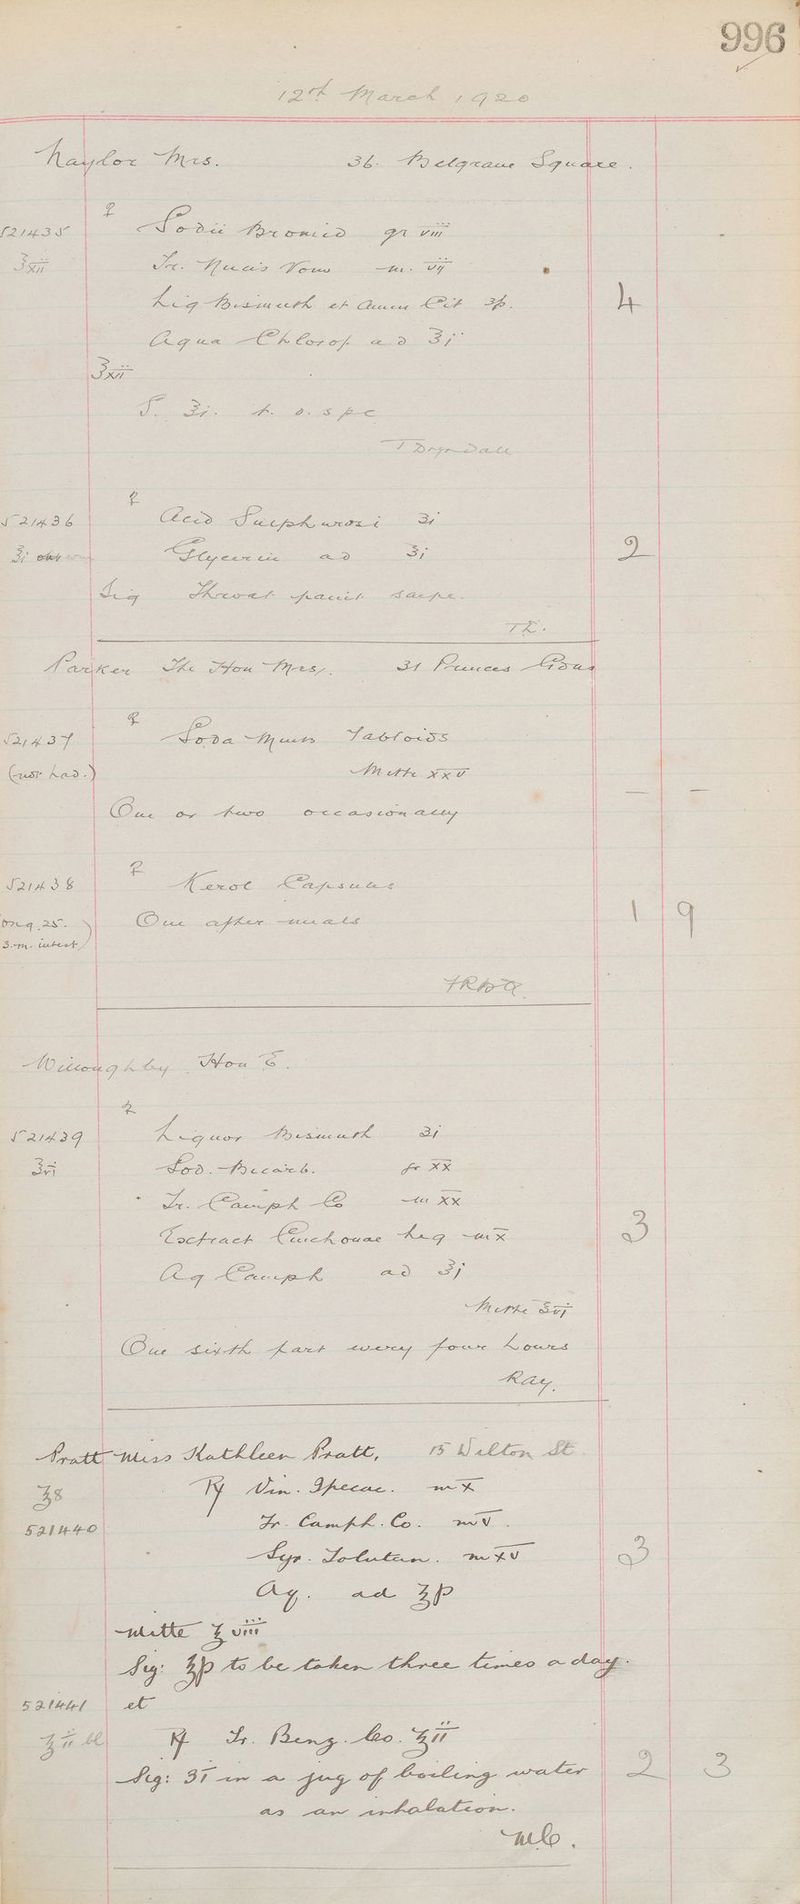 996
12th March 1920
Naylor Mrs. 36 Belgrave Square.
℞
521435 Sodii Bromid gr viii
℥xii Tr. Nucis Vom m. vij
Liq Bismuth et Amm Cit ʒp. 4
Aqua Chlorof ad ℥i
℥xii
S. ℥i. t. d. s p c
℞
521436 Acid Sulphurosi ʒi
℥i Glycerin ad ℥i 2
Sig Throat paint saepe.
Parker The Hon Mrs. 31 Princes Gdns
℞
521437 Soda Mint Tabloids
(not had.) Mitte xxv
One or two occasionally — —
℞
521438 Kerol Capsules
orig. 25. One after meals 1 9
3.m. intest)
Willoughby Hon E.
℞
521439 Liquor Bismuth ʒi
℥vi Sod. Bicarb. gr xx
Tr. Camph Co m xx
Extract Cinchonae Liq m x 3
Aq Camph ad ℥i
Mitte ℥vi
One sixth part every four hours
Ray.
Pratt Miss Kathleen Pratt, 15 Wilton St.
℥8 ℞ Vin. Ipecac. m x
521440 Tr. Camph. Co. m v.
Syr. Tolutan. m xv 3
Aq. ad ℥p
Mitte ℥viii
Sig: ℥p to be taken three times a day.
521441 et
℥ii ℞ Tr. Benz. Co. ℥ii
Sig: ʒi in a jug of boiling water 2 3
as an inhalation.